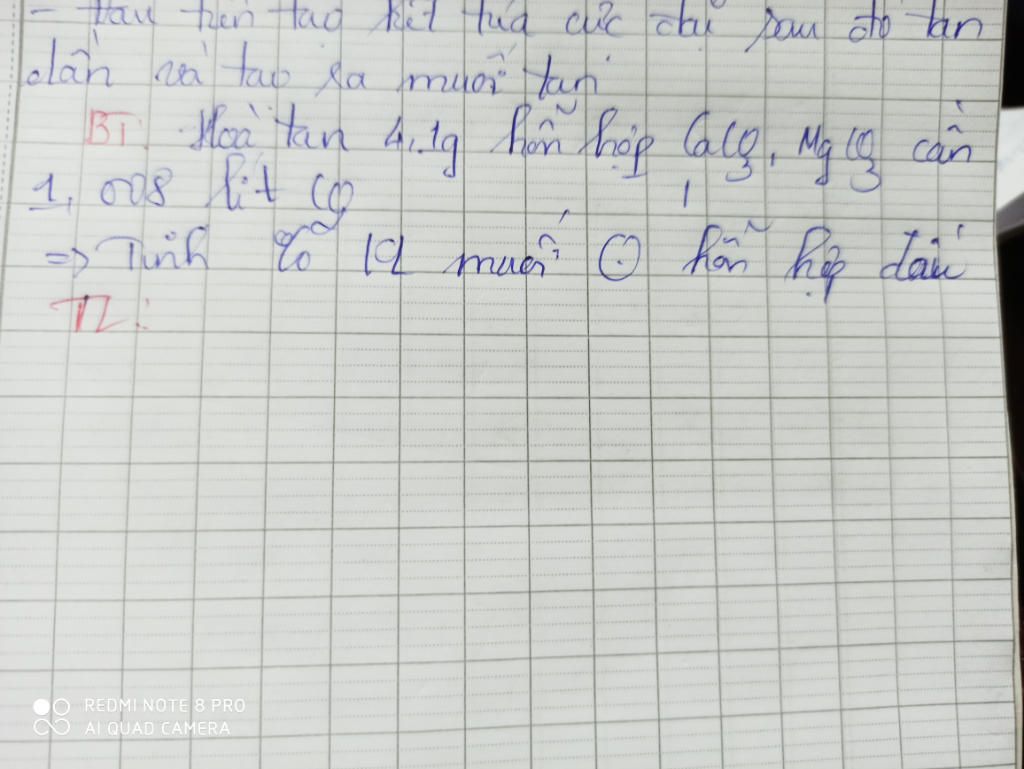 - đầu tiên tạo kết tủa cực đại sau đó tan
dần và tạo ra muối tan
BT: Hoà tan 4,1g hỗn hợp CaCO3, MgCO3 cần
1,008 lít CO2
=> Tính % lq muối ⊙ hỗn hợp đầu
TL:
REDMI NOTE 8 PRO
AI QUAD CAMERA